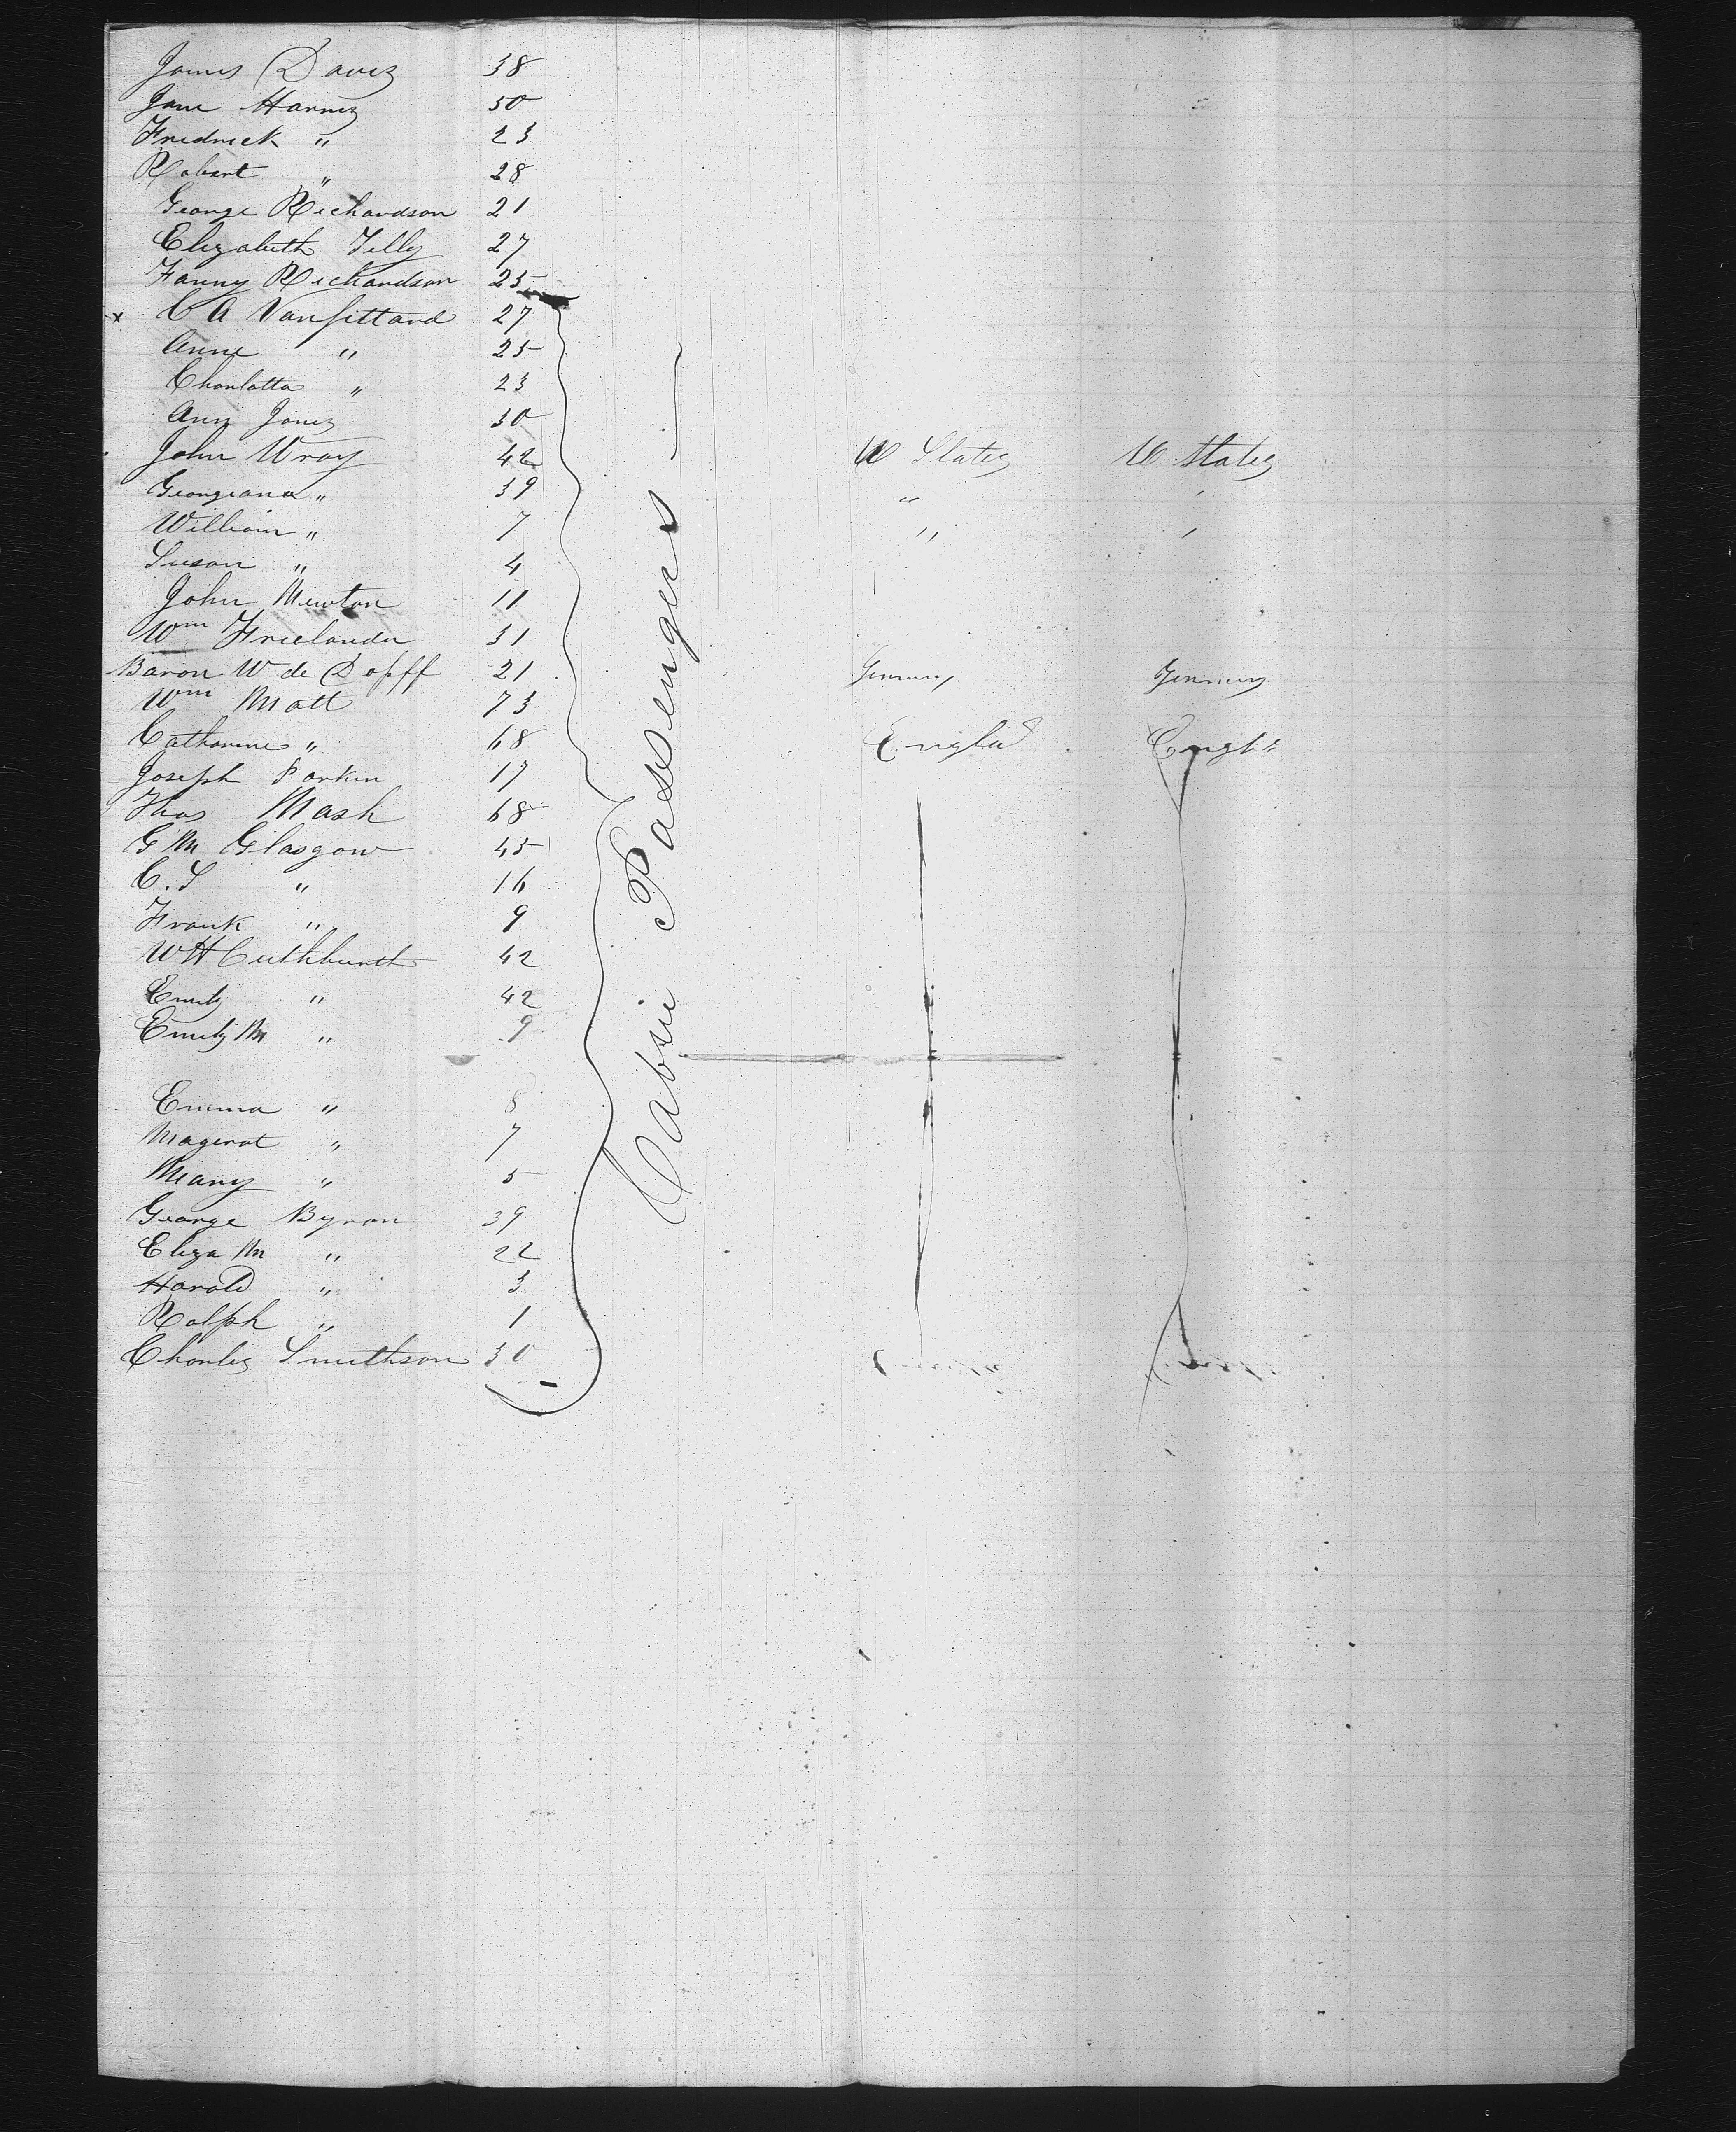 James Davis 38
Jane Harris 50
Fredrick " 23
Robert " 28
George Richardson 21
Elizabeth Tilly 27
Fanny Richardson 25
x C A Vansittard 27
Anne " 25
Charlotta " 23
Ann Jones 30
John Wray 42 U States U States
Georgeana " 39 " "
William " 7 " "
Susan " 4
John Newton 11
Wm Freelander 31
Baron W de Dopff 21 Germany Germany
Wm Mott 73
Catharine " 68 Engld Engld
Joseph Parkin 17
Thos Mash 68
G M Glasgow 45
C. S " 16
Frank " 9
W H Cuthburth 42
Emily " 42
Emily M " 9
Emma " 8
Magerat " 7
Mary " 5
George Byron 39
Eliza M " 22
Harold " 3
Ralph " 1
Charles Smithson 30
Cabin Passengers